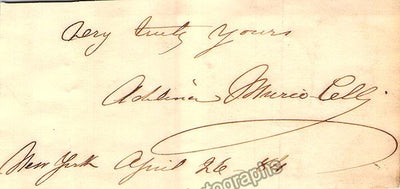 Very truly yours
Adelina Murio-Celli
New York April 26
tographs